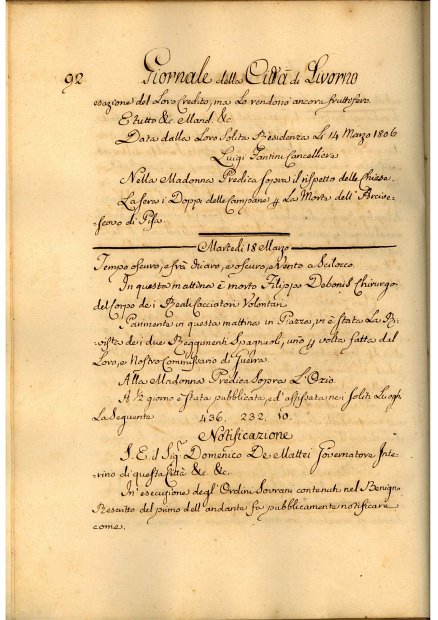 92 Giornale della Città di Livorno
esazione del Loro Credito, ma Lo rendono ancora fruttifero.
E tutto &c. Mand. &c.
Data dalla Loro Solita Residenza Lì 14 Marzo 1806
Luigi Fantini Cancelliere
Nella Madonna Predica sopra il rispetto delle Chiese.
La sera i Doppi delle Campane p La Morte dell' Arcive-
scovo di Pisa.
Martedì 18 Marzo
Tempo oscuro, e frà chiaro, e oscuro, e Vento a Scilocco.
In questa mattina è morto Filippo Debonis Chirurgo
del Corpo dei Reali Cacciatori Volontari
Parimente in questa mattina in Piazza, vi è stata La Ri-
vista dei due Reggimenti Spagnuoli, uno p volta fatta dal
Loro, e Nostro Commissario di Guerra.
Alla Madonna Predica Sopra L'Ozio
A ½ giorno è stata pubblicata, ed' affissata nei soliti Luoghi
La Seguente 436. 232. 10.
Notificazione
S. E. il Sigr Domenico De Mattei Governatore Inte-
rino di questa Città &c. &c.
In' esecuzione degl' Ordini Sovrani contenuti nel Benigno
Rescritto del primo dell' andante fa pubblicamente notificare
come.